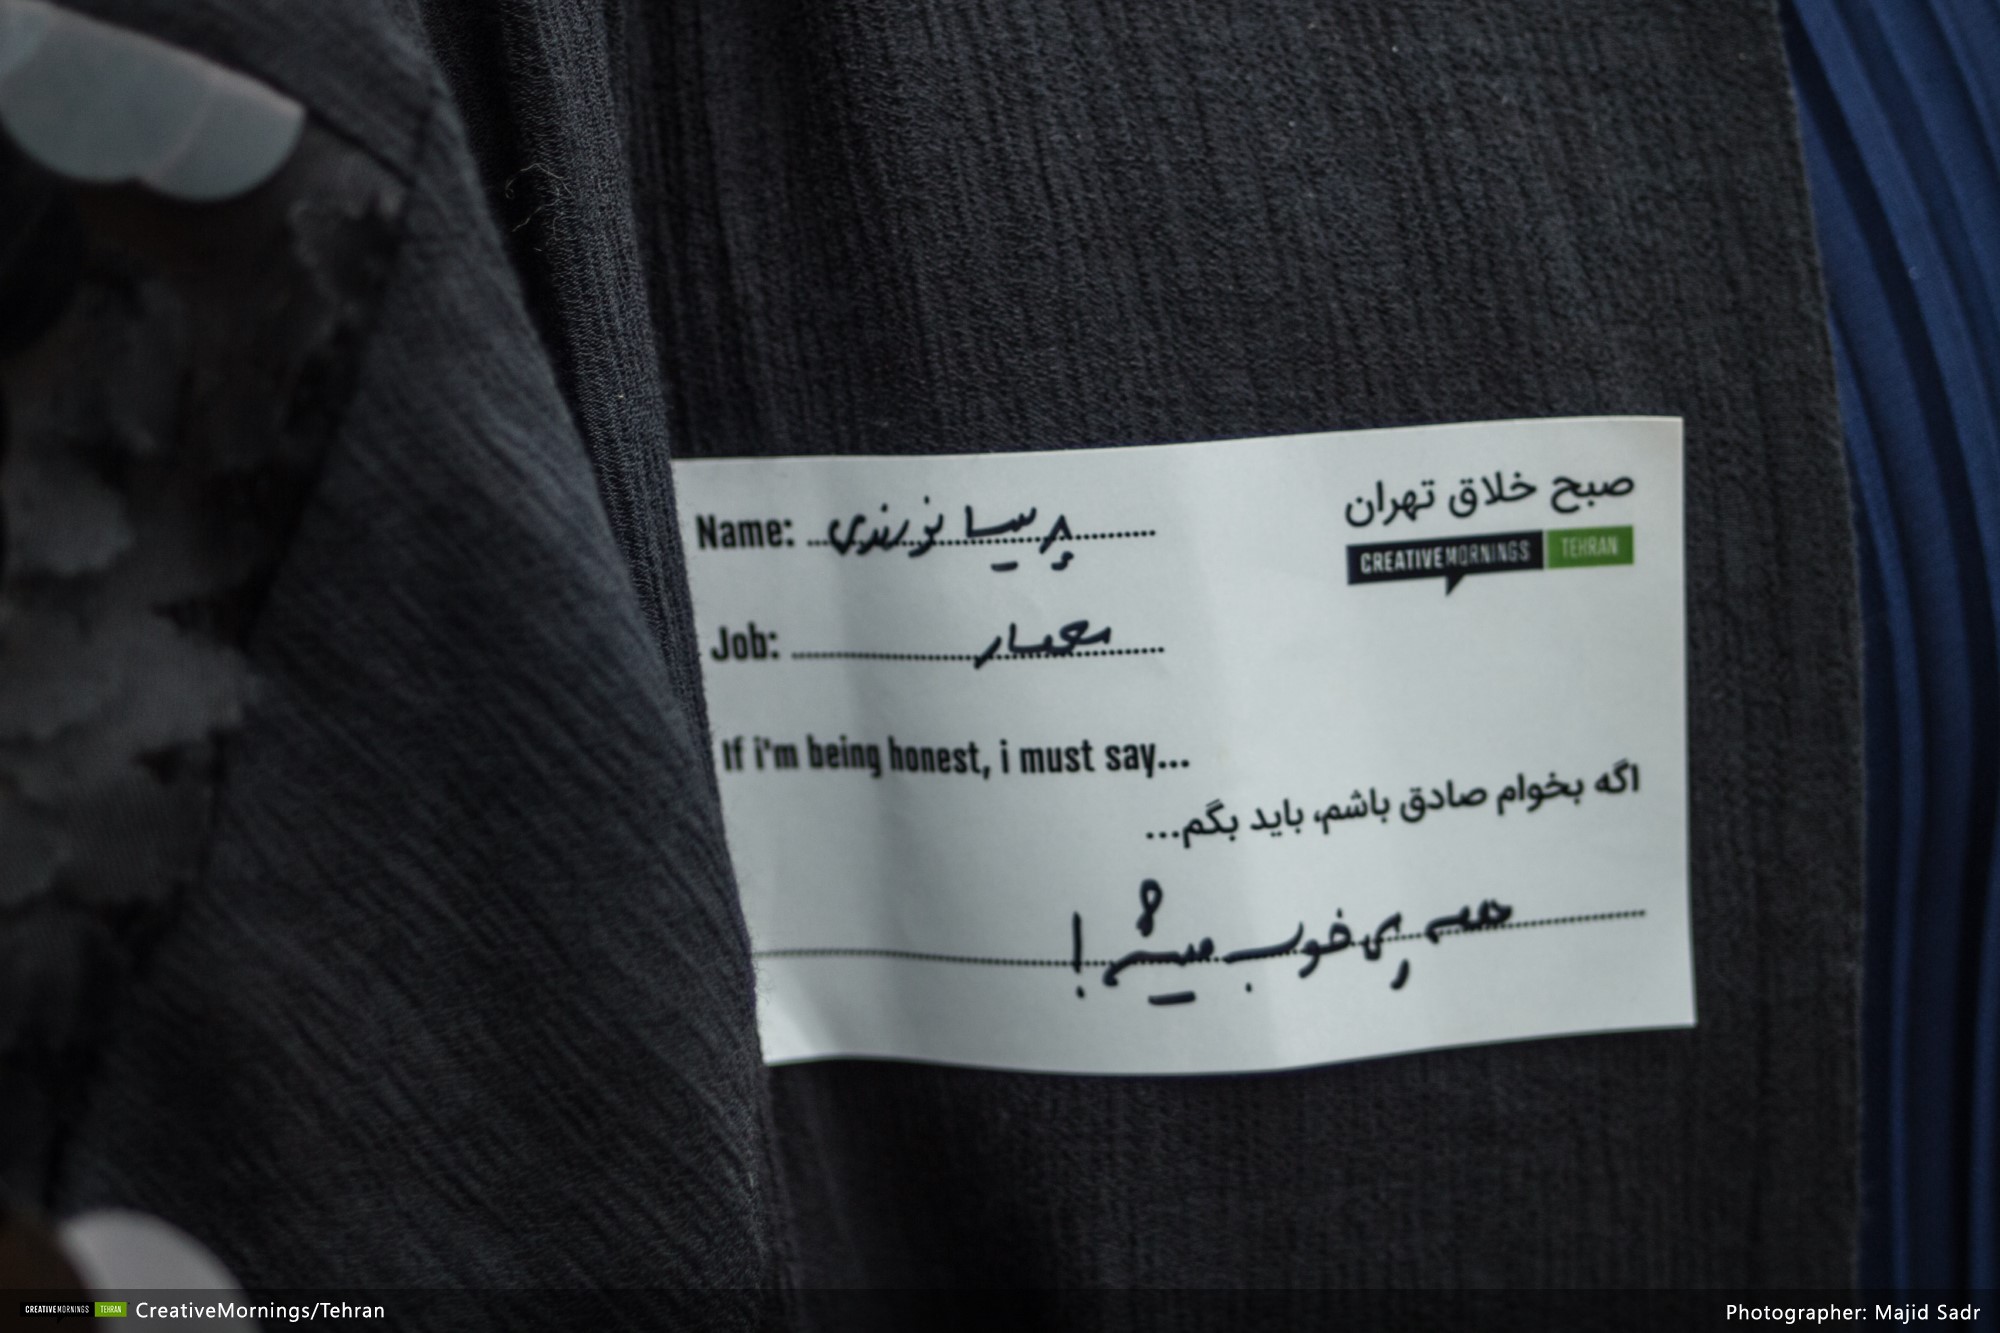 صبح خلاق تهران
CREATIVEMORNINGS TEHRAN
Name: پریسا نورندی
Job: معمار
If i'm being honest, i must say...
اگه بخوام صادق باشم، باید بگم...
همه چی خوب میشه!
CREATIVEMORNINGS TEHRAN CreativeMornings/Tehran
Photographer: Majid Sadr